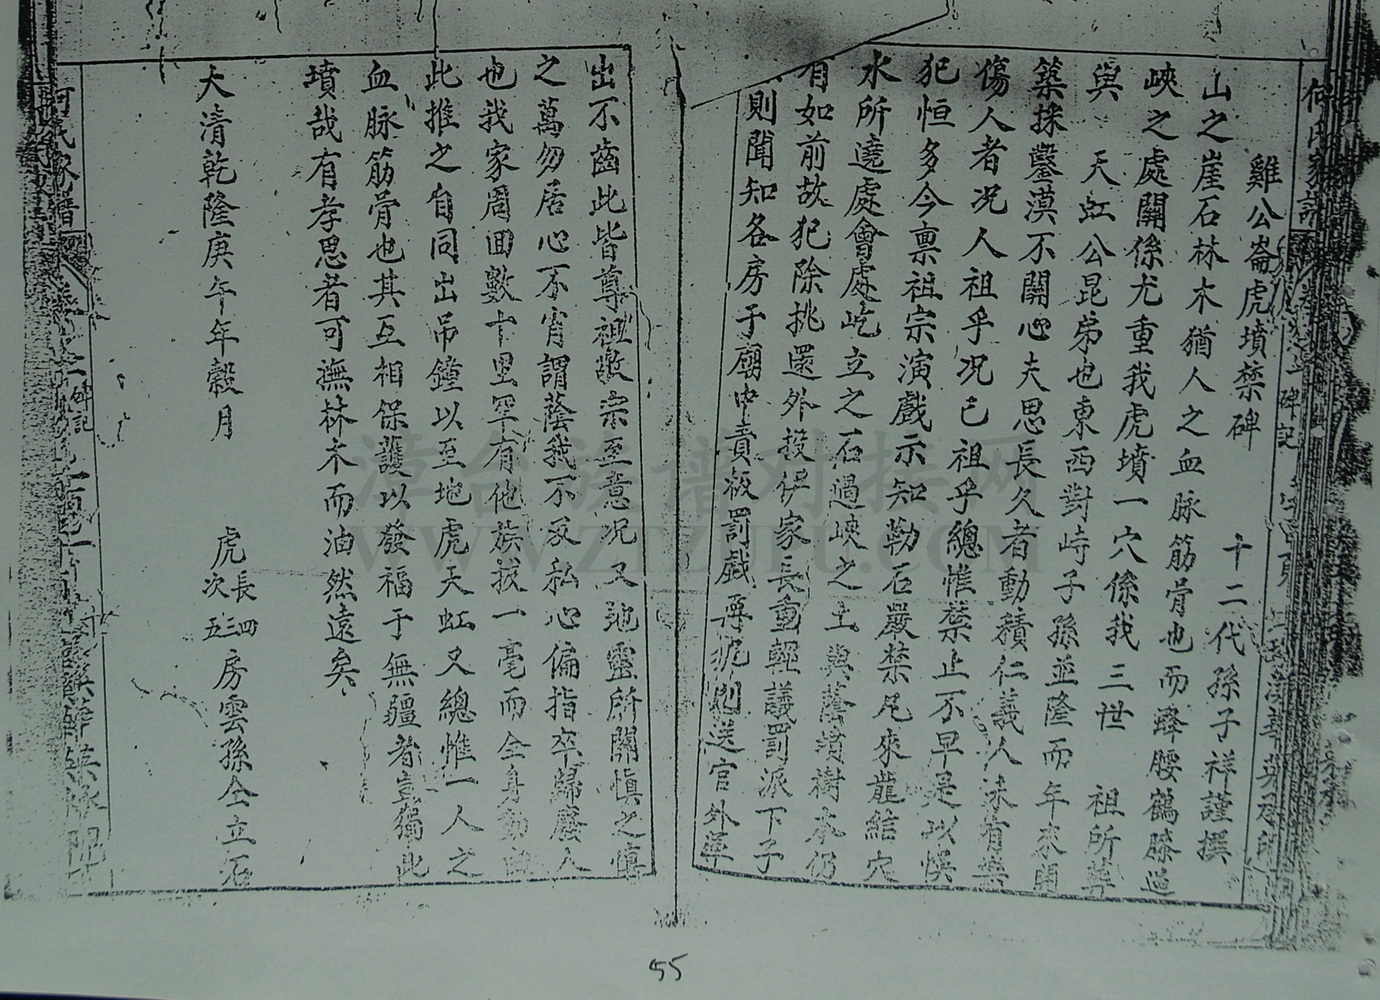 雞公崙虎墳禁碑
十二代孫子祥謹撰
山之崖石林木猶人之血脉筋骨也而蜂腰鶴膝過
峽之處關係尤重我虎墳一穴係我三世 祖所葬
與 天虹公昆弟也東西對峙子孫並隆而年來
築採鑿漠不關心夫思長久者動積仁義人未有無
傷人者况人祖乎况己祖乎總惟禁止不早是以悞
犯恒多今禀祖宗演戲示知勒石嚴禁凡來龍結穴
水所遶處會處屹立之石過峽之土與蔭墳樹木仍
有如前故犯除挑還外投伊家長重輕議罰派下子
則聞知各房于廟中責板罰戲再犯則送官外
出不齒此皆尊祖敬宗至意况又地靈所關慎之慎
之萬勿居心不肖謂蔭我不及私心偏指卒歸廢人
也我家周回數十里罕有他族拔一毫而全身動
此推之自同出吊鐘以至地虎天虹又總惟一人之
血脉筋骨也其互相保護以發福于無疆者豈獨此
墳哉有孝思者可撫林木而油然遠矣
大清乾隆庚午年榖月
虎長次三四五房雲孫仝立石
何氏家譜
碑記
漳台族谱对接网
55